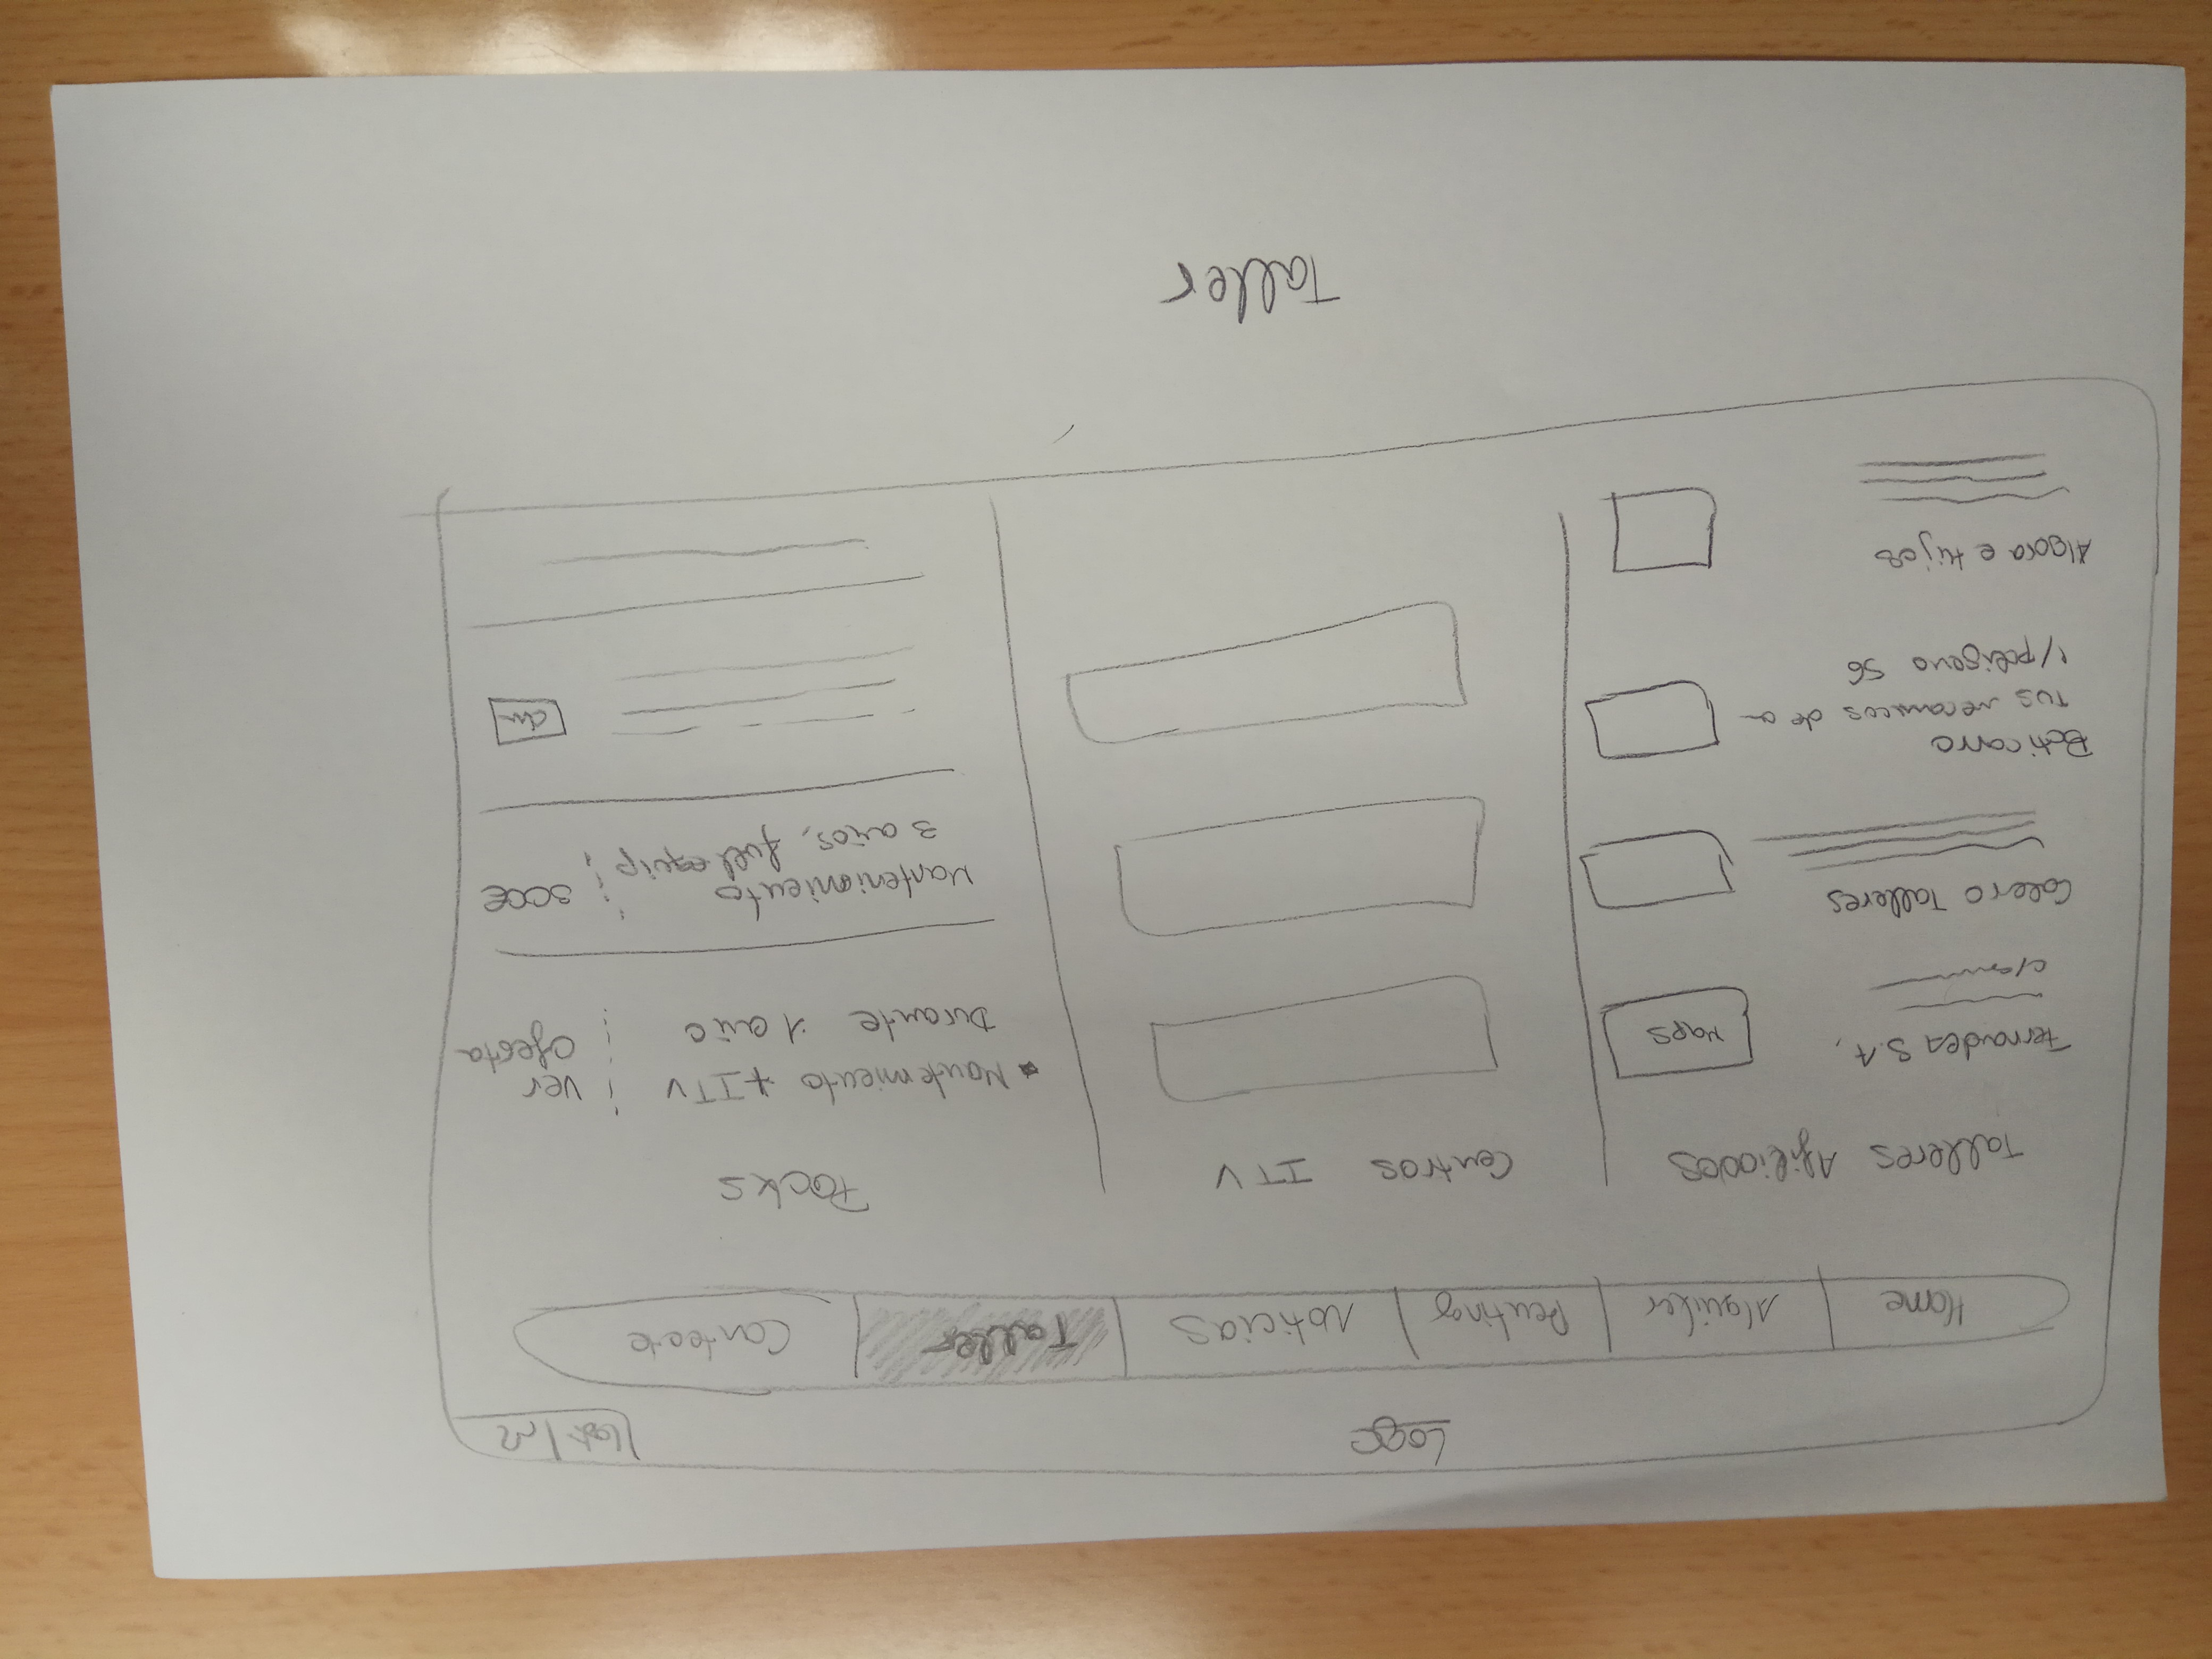 Logo
Home Alquiler Renting Noticias Taller Contacto
Talleres Afiliados
Fernandez S.A,
Maps
Calero Talleres
Baticarro
Tus mecanicos de
c/poligono 56
Algora e Hijos
Centros ITV
Packs
Mantemiento + ITV
Durante 1 año
ver
oferta
Mantenimiento
3 años, full equip
300€
Taller